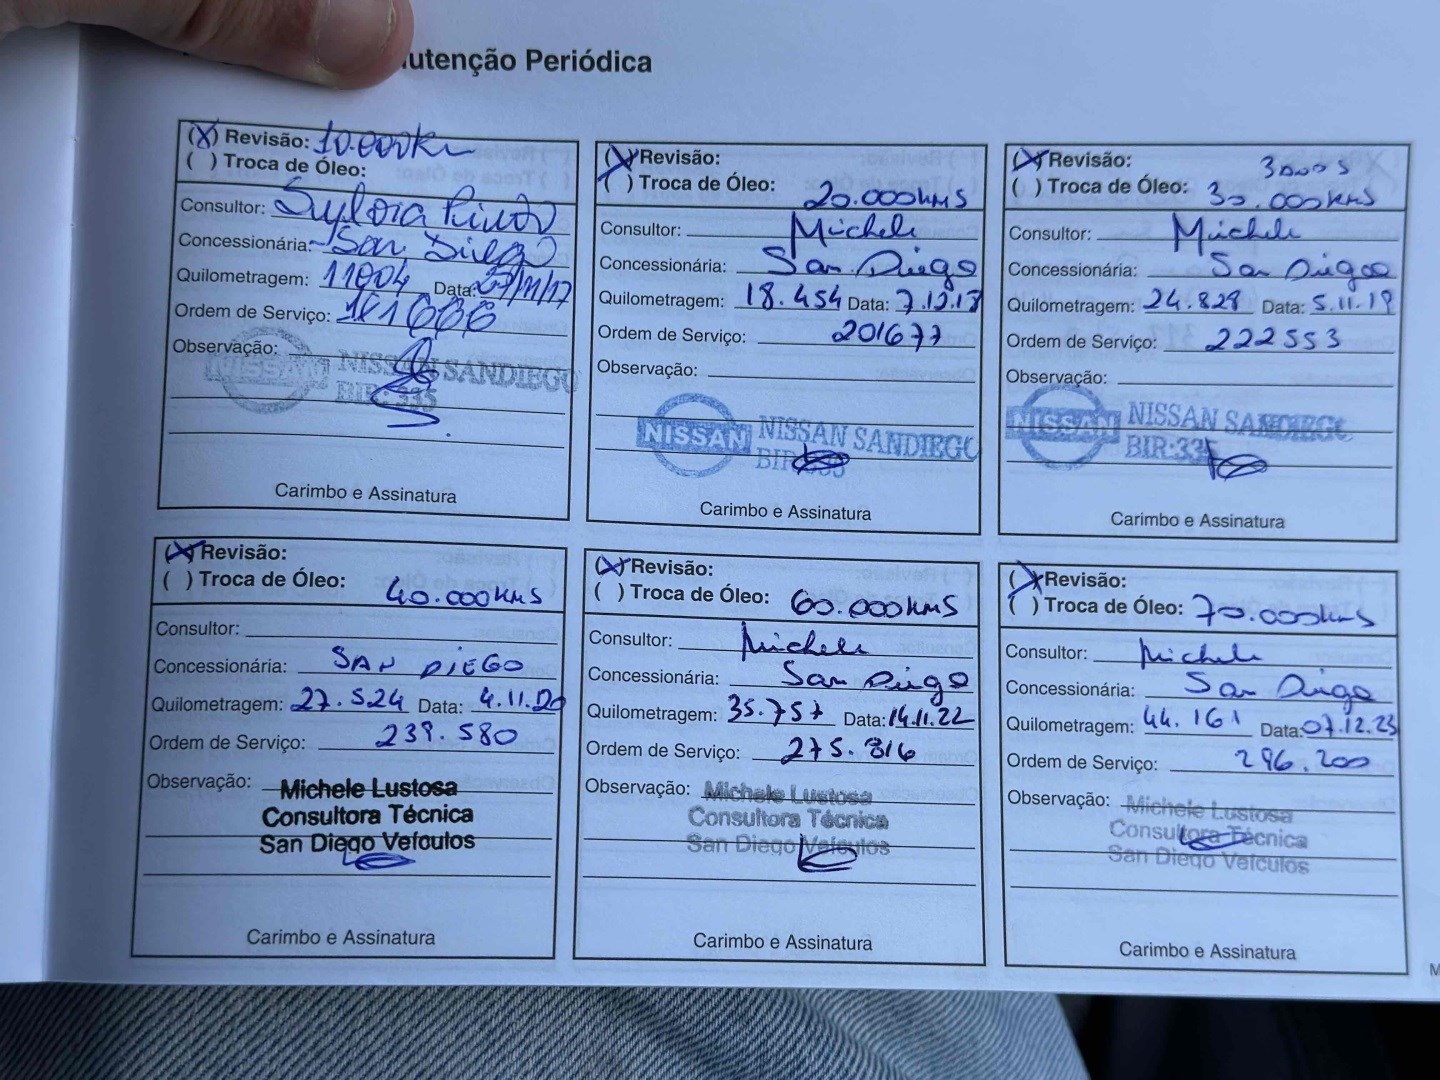 utenção Periódica
(X) Revisão: 10.000Km
( ) Troca de Óleo:
Consultor:
Concessionária: San Diego
Quilometragem: 11004 Data: 27/11/17
Ordem de Serviço:
Observação:
NISSAN NISSAN SANDIEGO
BIR:335
Carimbo e Assinatura
(X) Revisão:
( ) Troca de Óleo: 20.000KMS
Consultor: Michele
Concessionária: San Diego
Quilometragem: 18.454 Data: 7.12.18
Ordem de Serviço: 201677
Observação:
NISSAN NISSAN SANDIEGO
BIR:335
Carimbo e Assinatura
(X) Revisão: 3 anos
( ) Troca de Óleo: 30.000KMS
Consultor: Michele
Concessionária: San Diego
Quilometragem: 24.828 Data: 5.11.19
Ordem de Serviço: 222553
Observação:
NISSAN SANDIEGO
BIR:33
Carimbo e Assinatura
(X) Revisão:
( ) Troca de Óleo: 40.000KMS
Consultor:
Concessionária: SAN DIEGO
Quilometragem: 27.524 Data: 4.11.20
Ordem de Serviço: 239.580
Observação: Michele Lustosa
Consultora Técnica
San Diego Veículos
Carimbo e Assinatura
(X) Revisão:
( ) Troca de Óleo: 60.000KMS
Consultor: Michele
Concessionária: San Diego
Quilometragem: 35.757 Data: 14.11.22
Ordem de Serviço: 275.816
Observação: Michele Lustosa
Consultora Técnica
San Diego Veículos
Carimbo e Assinatura
(X) Revisão:
( ) Troca de Óleo: 70.000KMS
Consultor: Michele
Concessionária: San Diego
Quilometragem: 44.161 Data: 07.12.23
Ordem de Serviço: 296.200
Observação: Michele Lustosa
Consultora Técnica
San Diego Veículos
Carimbo e Assinatura
M